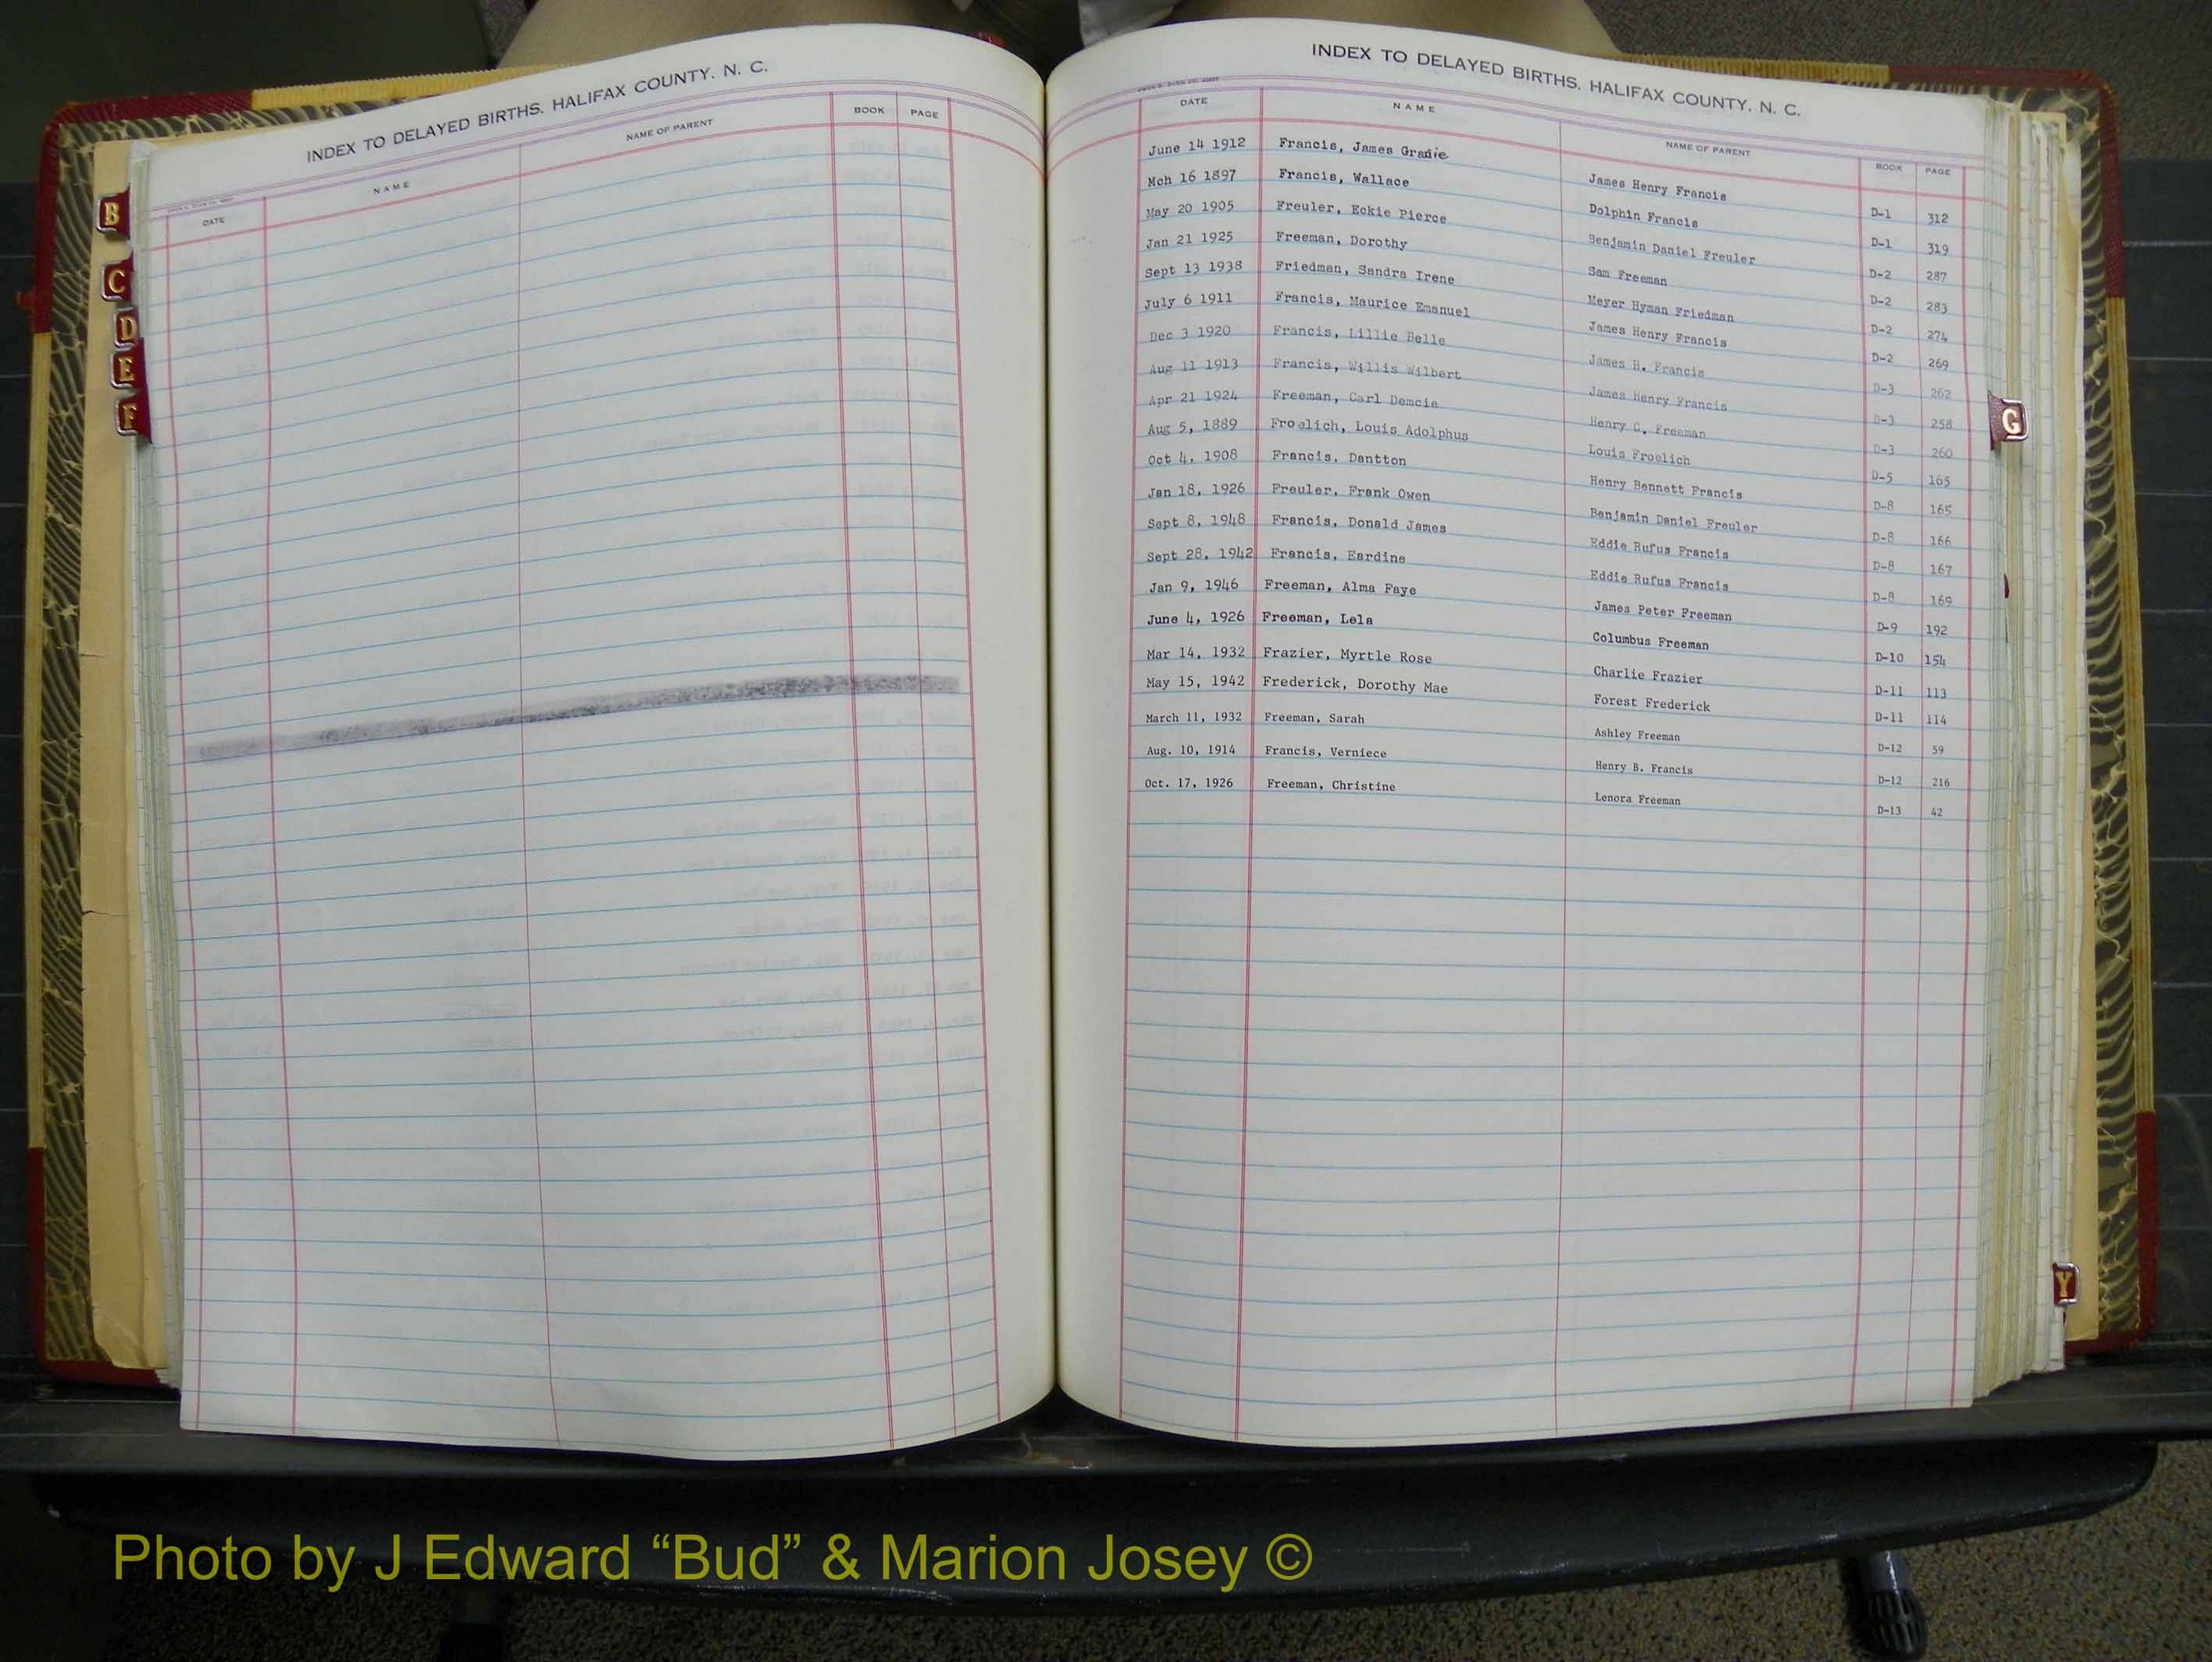 INDEX TO DELAYED BIRTHS, HALIFAX COUNTY, N. C.
DATE NAME NAME OF PARENT BOOK PAGE
B
C
D
E
F
INDEX TO DELAYED BIRTHS, HALIFAX COUNTY, N. C.
DATE NAME NAME OF PARENT BOOK PAGE
June 14 1912 Francis, James Gradie James Henry Francis D-1 312
Mch 16 1897 Francis, Wallace Dolphin Francis D-1 319
May 20 1905 Freuler, Eckie Pierce Benjamin Daniel Freuler D-2 287
Jan 21 1925 Freeman, Dorothy Sam Freeman D-2 283
Sept 13 1938 Friedman, Sandra Irene Meyer Hyman Friedman D-2 274
July 6 1911 Francis, Maurice Emanuel James Henry Francis D-2 269
Dec 3 1920 Francis, Lillie Belle James H. Francis D-3 262
Aug 11 1913 Francis, Willis Wilbert James Henry Francis D-3 258
Apr 21 1924 Freeman, Carl Demcie Henry C. Freeman D-3 260
Aug 5, 1889 Froelich, Louis Adolphus Louis Froelich D-5 165
Oct 4, 1908 Francis, Dantton Henry Bennett Francis D-8 165
Jan 18, 1926 Freuler, Frank Owen Benjamin Daniel Freuler D-8 166
Sept 8, 1948 Francis, Donald James Eddie Rufus Francis D-8 167
Sept 28, 1942 Francis, Eardine Eddie Rufus Francis D-8 169
Jan 9, 1946 Freeman, Alma Faye James Peter Freeman D-9 192
June 4, 1926 Freeman, Lela Columbus Freeman D-10 154
Mar 14, 1932 Frazier, Myrtle Rose Charlie Frazier D-11 113
May 15, 1942 Frederick, Dorothy Mae Forest Frederick D-11 114
March 11, 1932 Freeman, Sarah Ashley Freeman D-12 59
Aug. 10, 1914 Francis, Verniece Henry B. Francis D-12 216
Oct. 17, 1926 Freeman, Christine Lenora Freeman D-13 42
G
Y
Photo by J Edward “Bud” & Marion Josey ©